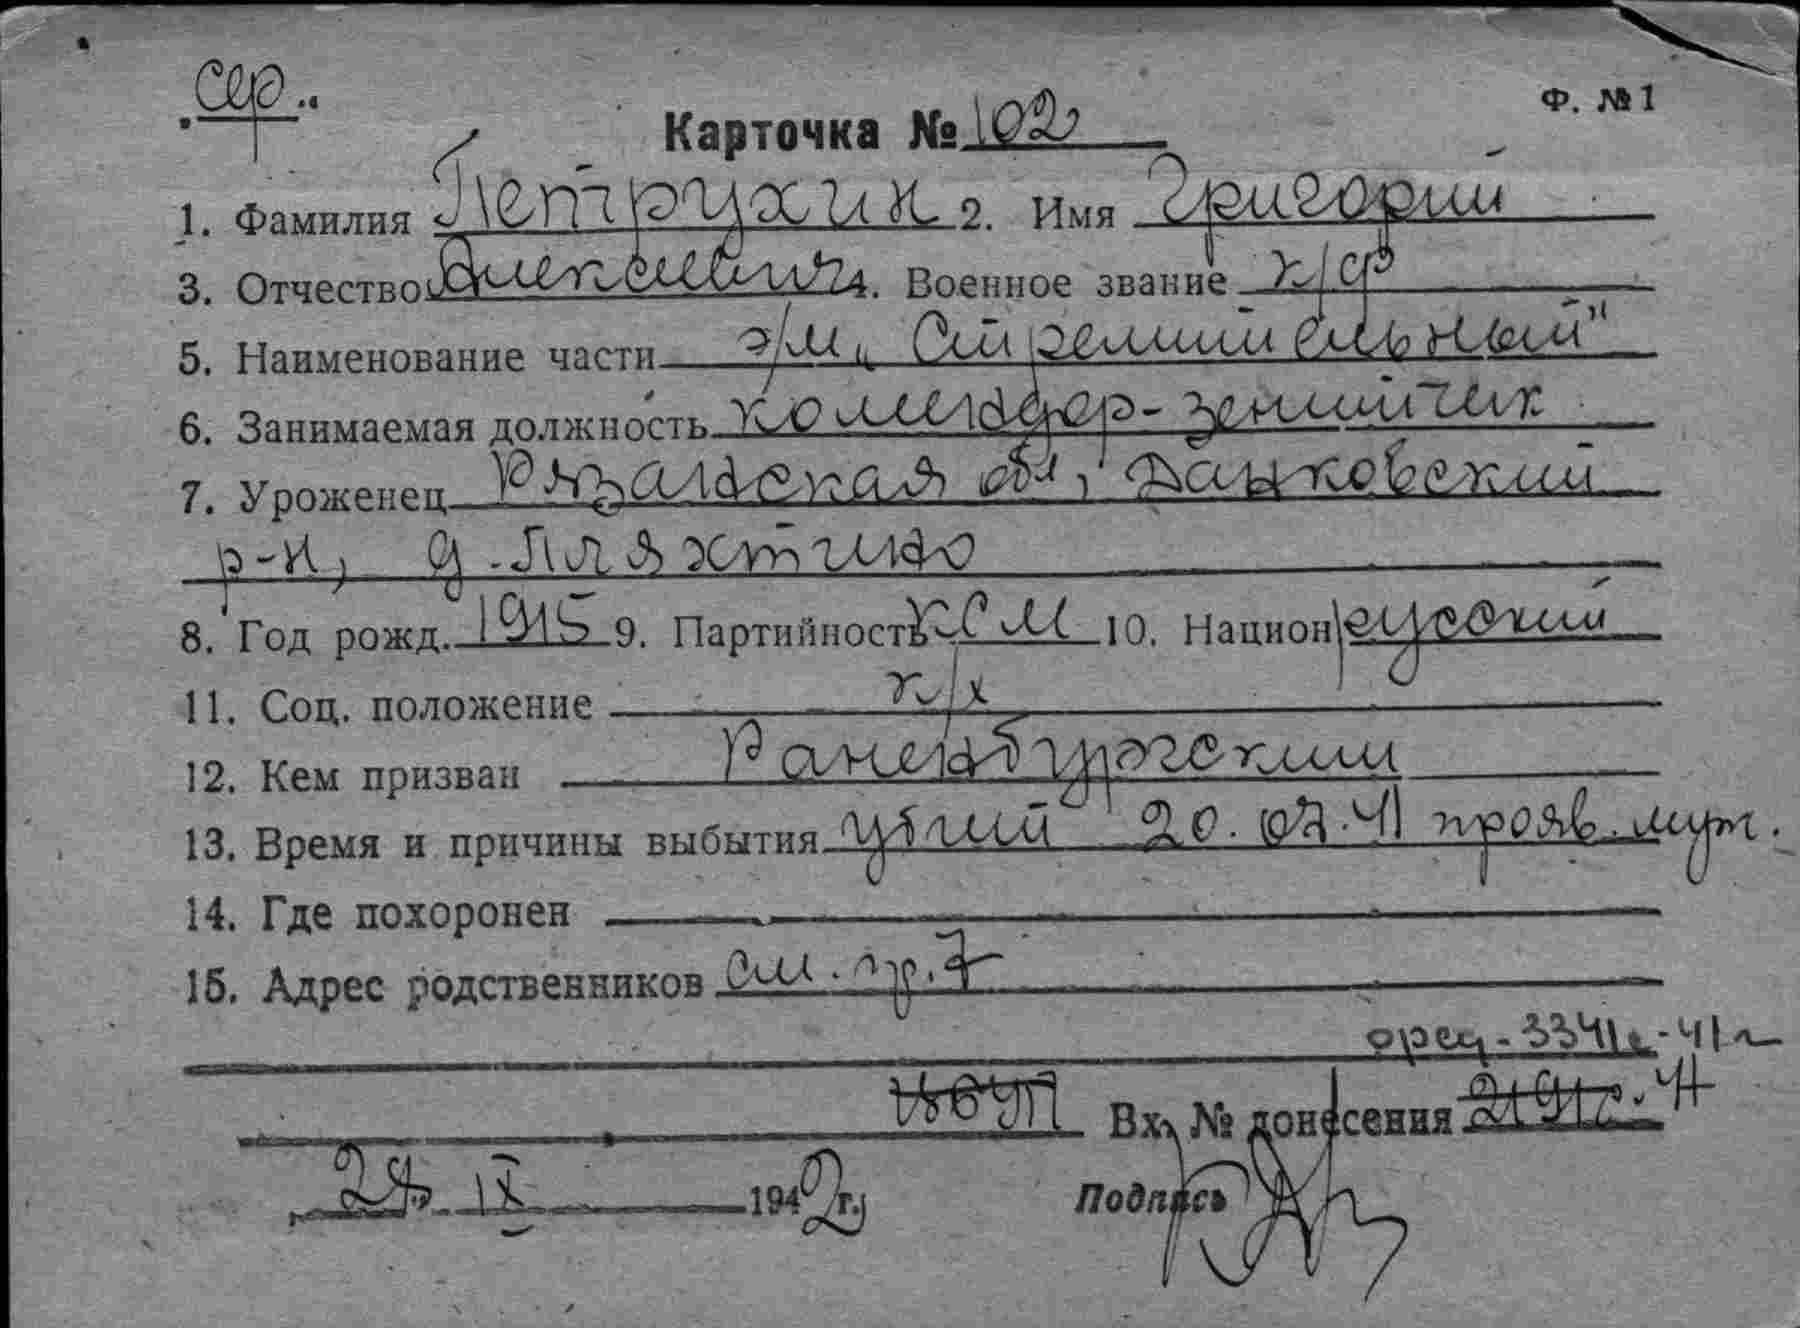 сер..
Ф. №1
Карточка № 102
1. Фамилия Петрухин 2. Имя Григорий
3. Отчество Алексеевич 4. Военное звание к/ф
5. Наименование части э/м „Стремительный"
6. Занимаемая должность командор-зенитчик
7. Уроженец Рязанская обл, Данковский
р-н, д. Пляхтино
8. Год рожд. 1915 9. Партийность КСМ 10. Национ русский
11. Соц. положение к/х
12. Кем призван Раненбургский
13. Время и причины выбытия убит 20.07.41 прояв. муж.
14. Где похоронен
15. Адрес родственников см. пр. 7
41г
Вх. № донесения
IX 1942г.
Подпись